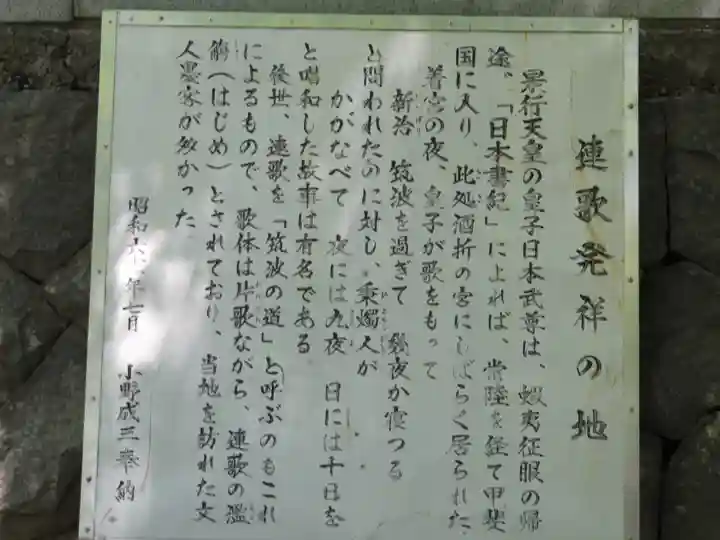 連歌発祥の地
景行天皇の皇子日本武尊は、蝦夷征服の帰
途、「日本書紀」によれば、常陸を経て甲斐
国に入り、此処酒折の宮にしばらく居られた。
着宮の夜、皇子が歌をもって
新治 筑波を過ぎて 幾夜か寝つる
と問われたのに対し、秉燭人が
かがなべて 夜には九夜 日には十日を
と唱和した故事は有名である
後世、連歌を「筑波の道」と呼ぶのもこれ
によるもので、歌体は片歌ながら、連歌の濫
觴(はじめ)とされており、当地を訪れた文
人墨客が多かった。
昭和六 年七月 小野成三奉納